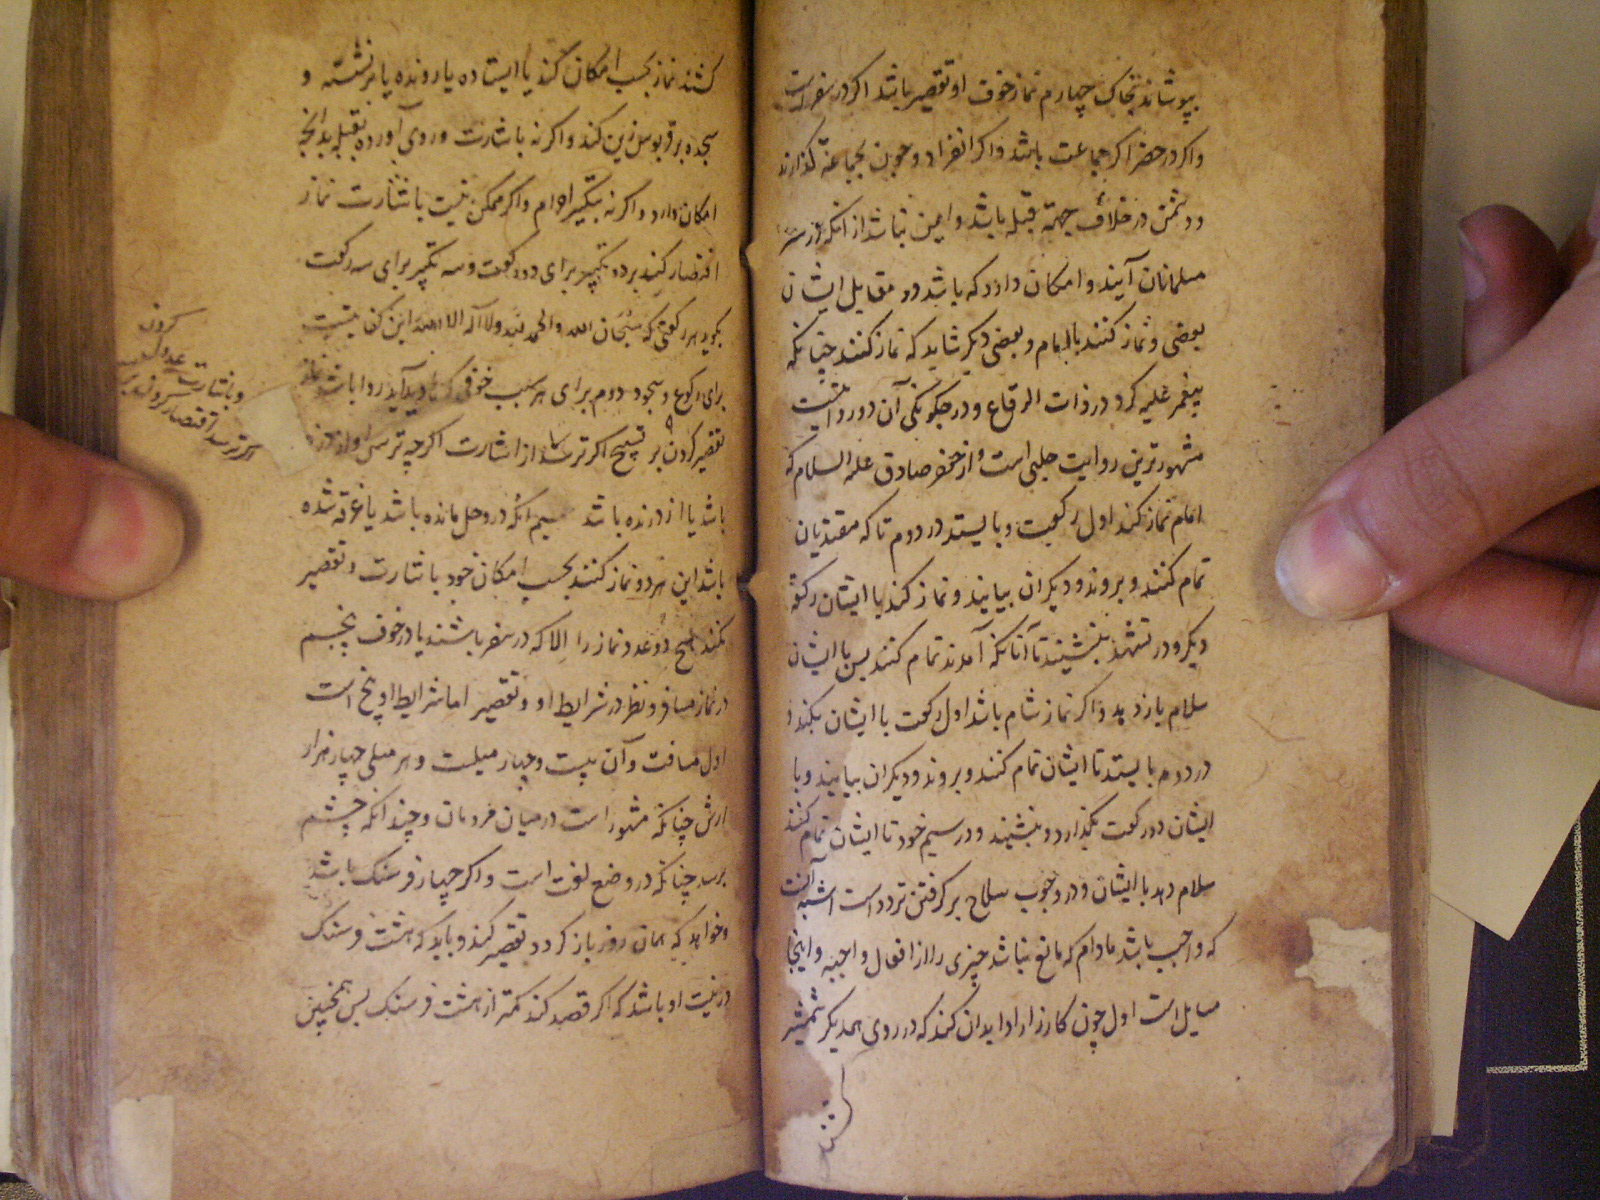 بپوشاند بخاک چهارم نماز خوف او تقصیر باشد اکر در سفر است
و اکر در حضر اکر جماعت باشد و اکر انفراد و چون بجماعة کذارند
و دشمن در خلاف جهة قبله باشد و ایمن نباشد از انکه بر سر
مسلمانان آیند و امکان دارد که باشد در مقابل ایشان
بعضی و نماز کنند با امام و بعضی دیکر شاید که نماز کنند چنانکه
پیغمبر علیه کرد در ذات الرقاع و در چکونکی آن دو روایتست
مشهورترین روایت حلبی است از حضر صادق علیه السلام که
امام نماز کند اول رکعت و بایستد در دوم تا که مقتدیان
تمام کنند و بروند و دیکران بیایند و نماز کند با ایشان رکعتی
دیکر و در تشهد بنشیند تا آنانکه آمدند تمام کنند پس با ایشان
سلام باز دهد و اکر نماز شام باشد اول رکعت با ایشان بکند و
در دوم بایستد تا ایشان تمام کنند و بروند و دیکران بیایند و با
ایشان دو رکعت بکذارد و بنشیند در سیم خود تا ایشان تمام کنند
سلام دهد با ایشان و در وجوب سلاح بر کرفتن تردد است اشبه آنست
که واجب باشد مادام که مانع نباشد چیزی را از افعال واجبه و اینجا
مسایل است اول چون کارزار ادا بدان کند که در روی همدیکر شمشیر
کشند
کشند نماز بحسب امکان کند یا ایستاده یا رونده یا بر نشسته و
سجده بر قربوس زین کند و اکر نه باشارت و روی آورده بقبله بدانچه
امکان دارد و اکر نه بتکبیر احرام و اکر ممکن نیست باشارت نماز
اقتصار کنند بر دو تکبیر برای دو رکعت و سه تکبیر برای سه رکعت
بکوید هر رکعتی که سبحان الله والحمد لله ولا اله الا الله این کفایتست
برای رکوع و سجود دوم برای هر سبب خوفی که پدید آید روا باشد
تقصیر کردن و بر تسبیح اکر ترسد از اشارت اکرچه ترس او از دزد
باشد یا از درنده باشد سیم آنکه در وحل مانده باشد یا غرقه شده
باشد این هر دو نماز کنند بحسب امکان خود باشارت و تقصیر
نکنند هیچ دو عدد نماز را الا که در سفر باشند یا در خوف پنجم
در نماز مسافر و نظر در شرایط او و تقصیر اما شرایط او پنج است
اول مسافت و آن بیست و چهار میلست و هر میلی چهار هزار
ارش چنانکه مشهور است در میان مردمان و چندانکه چشم
برسد چنانکه در وضع لغت است و اکر چهار فرسنک باشد
و خواهد که همان روز باز کردد تقصیر کند و باید که هشت فرسنک
در نیت او باشد که اکر قصد کند کمتر از هشت فرسنک پس همچنین
کردن
و باشارت عدول
اکر ترسد اقتصار کردن بر